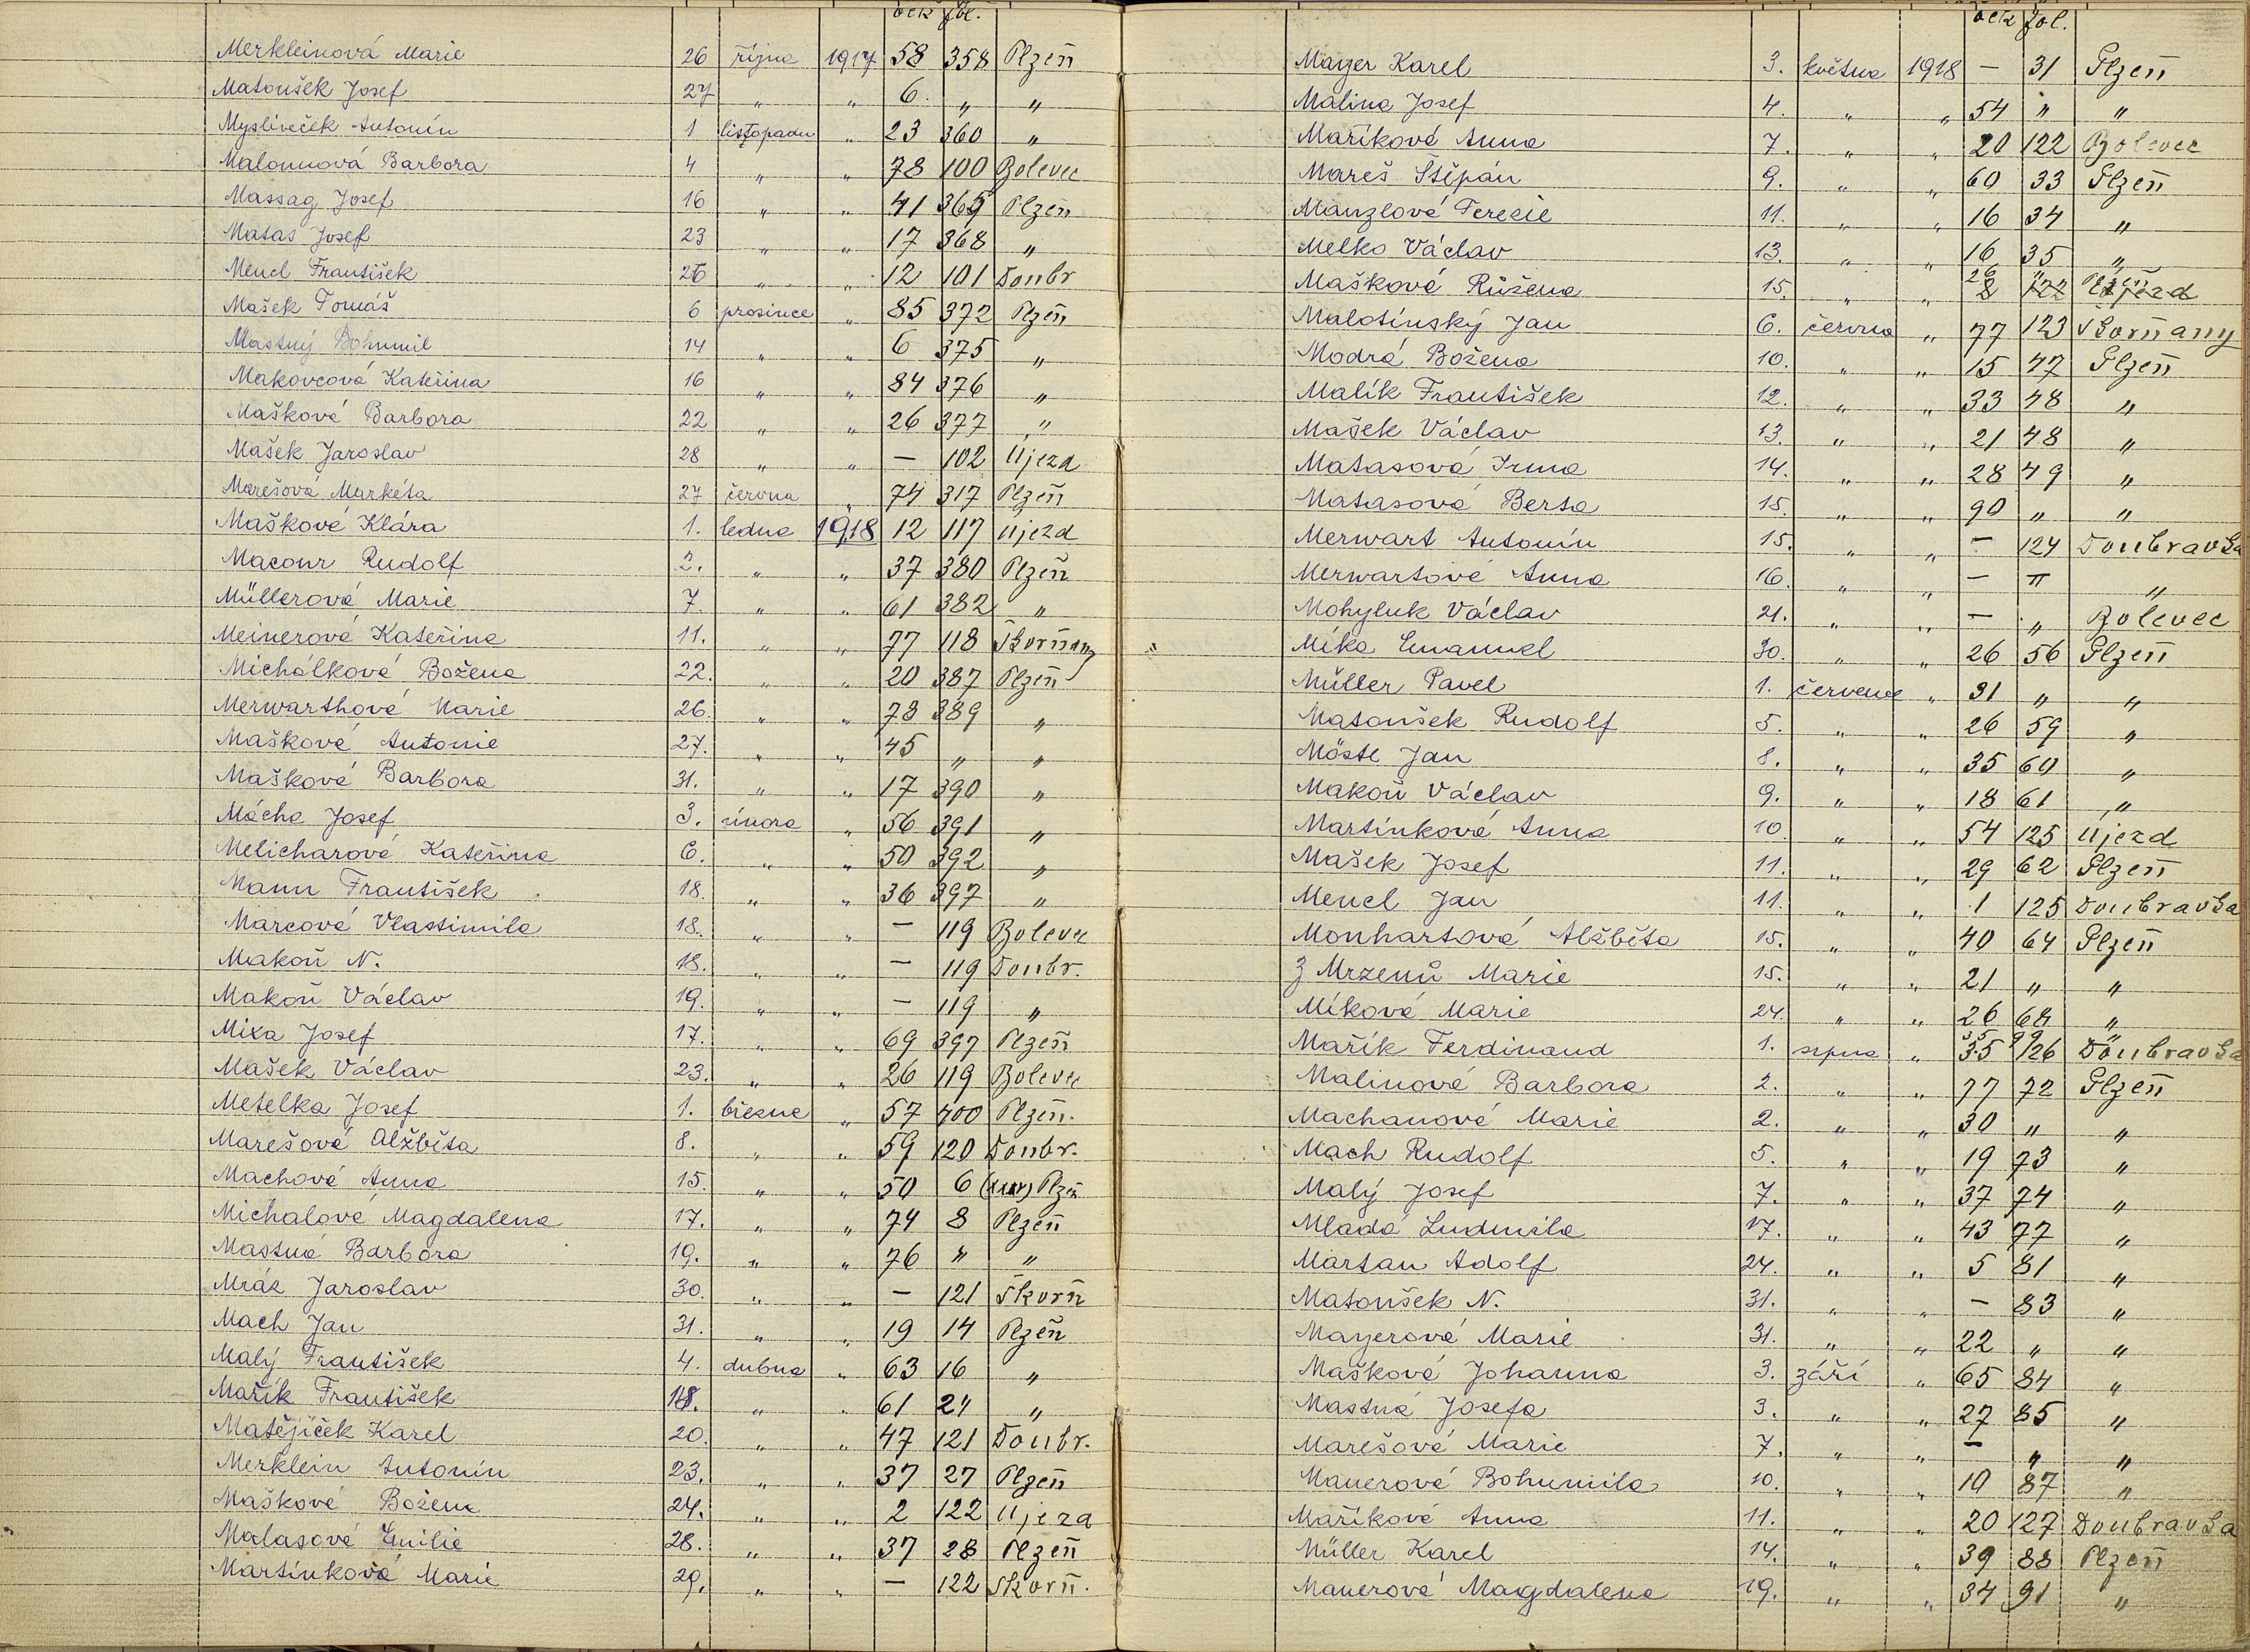 fol.
Merkleinová Marie 26 října 1917 58 358 Plzeň
Matoušek Josef 27 " " 6 " "
Mysliveček Antonín 1 listopadu " 23 360 "
Malonnová Barbora 4 " " 78 100 Bolevec
Massag Josef 16 " " 41 365 Plzeň
Matas Josef 23 " " 17 368 "
Mencl František 26 " " 12 101 Doubr
Mašek Tomáš 6 prosince " 85 372 Plzeň
Mastný Bohumil 14 " " 6 375 "
Makovcová Kateřina 16 " " 84 376 "
Mašková Barbora 22 " " 26 377 "
Mašek Jaroslav 28 " " — 102 Újezd
Marešová Markéta 27 června " 74 317 Plzeň
Mašková Klára 1. ledna 1918 12 117 Újezd
Macour Rudolf 2. " " 37 380 Plzeň
Müllerová Marie 7. " " 61 382 "
Meinerová Kateřina 11. " " 77 118 Skorňany
Michálková Božena 22. " " 20 387 Plzeň
Merwarthová Marie 26. " " 78 389 "
Mašková Antonie 27. " " 45 " "
Mašková Barbora 31. " " 17 390 "
Mácha Josef 3. února " 56 391 "
Melicharová Kateřina 6. " " 50 392 "
Mann František 18. " " 36 397 "
Marcová Vlastimila 18. " " — 119 Bolevec
Makoň N. 18. " " — 119 Doubr.
Makoň Václav 19. " " — 119 "
Mixa Josef 17. " " 69 397 Plzeň
Mašek Václav 23. " " 26 119 Bolevec
Metelka Josef 1. března " 57 400 Plzeň.
Marešová Alžběta 8. " " 59 120 Doubr.
Machová Anna 15. " " 50 6 Plzeň
Michalová Magdalena 17. " " 74 8 Plzeň
Mastná Barbora 19. " " 76 " "
Mráz Jaroslav 30. " " — 121 Skorň
Mach Jan 31. " " 19 14 Plzeň
Malý František 4. dubna " 63 16 "
Mařík František 18. " " 61 24 "
Matějíček Karel 20. " " 47 121 Doubr.
Merklein Antonín 23. " " 37 27 Plzeň
Mašková Božena 24. " " 2 122 Újezd
Malasová Emilie 28. " " 37 28 Plzeň
Martínková Marie 29. " " — 122 Skorň.
fol.
Mayer Karel 3. května 1918 — 31 Plzeň
Malina Josef 4. " " 54 " "
Maříková Anna 7. " " 20 122 Bolevec
Mareš Štěpán 9. " " 60 33 Plzeň
Manzlová Terezie 11. " " 16 34 "
Melko Václav 13. " " 16 35 "
Mašková Růžena 15. " " 2 122 Újezd
Malotínský Jan 6. června " 77 123 Skorňany
Modrá Božena 10. " " 15 47 Plzeň
Malík František 12. " " 33 48 "
Mašek Václav 13. " " 21 48 "
Matasová Irma 14. " " 28 49 "
Matasová Berta 15. " " 90 " "
Merwart Antonín 15. " " — 124 Doubravka
Merwartová Anna 16. " " — " "
Mohyluk Václav 21. " " — " Bolevec
Míka Emanuel 30. " " 26 56 Plzeň
Müller Pavel 1. července " 31 " "
Matoušek Rudolf 5. " " 26 59 "
Möstl Jan 8. " " 35 60 "
Makoň Václav 9. " " 18 61 "
Martínková Anna 10. " " 54 125 Újezd
Mašek Josef 11. " " 29 62 Plzeň
Mencl Jan 11. " " 1 125 Doubravka
Monhartová Alžběta 15. " " 40 64 Plzeň
Z Mrzenů Marie 15. " " 21 " "
Míková Marie 24. " " 26 68 "
Mařík Ferdinand 1. srpna " 35 126 Doubravka
Malinová Barbora 2. " " 77 72 Plzeň
Machanová Marie 2. " " 30 " "
Mach Rudolf 5. " " 19 73 "
Malý Josef 7. " " 37 74 "
Mladá Ludmila 17. " " 43 77 "
Martan Adolf 24. " " 5 81 "
Matoušek N. 31. " " — 83 "
Mayerová Marie 31. " " 22 " "
Mašková Johanna 3. září " 65 84 "
Mastná Josefa 3. " " 27 85 "
Marešová Marie 7. " " — " "
Mauerová Bohumila 10. " " 10 87 "
Maříková Anna 11. " " 20 127 Doubravka
Müller Karel 14. " " 39 88 Plzeň
Mauerová Magdalena 19. " " 34 91 "